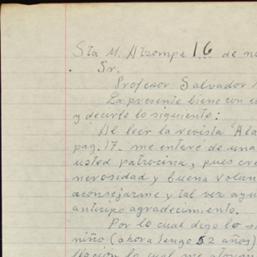 Sta M. Atzompa 16 de no
Sr.
Profesor Salvador
La presente biene con e
y decirle lo siguiente:
Al leer la revista "Ala
pag. 17. me enteré de una
usted patrocina, pues cre
nerosidad y buena volun
aconsejarme y tal vez ayu
anticipo agradecimiento.
Por lo cual digo lo si
niño (ahora tengo 52 años)